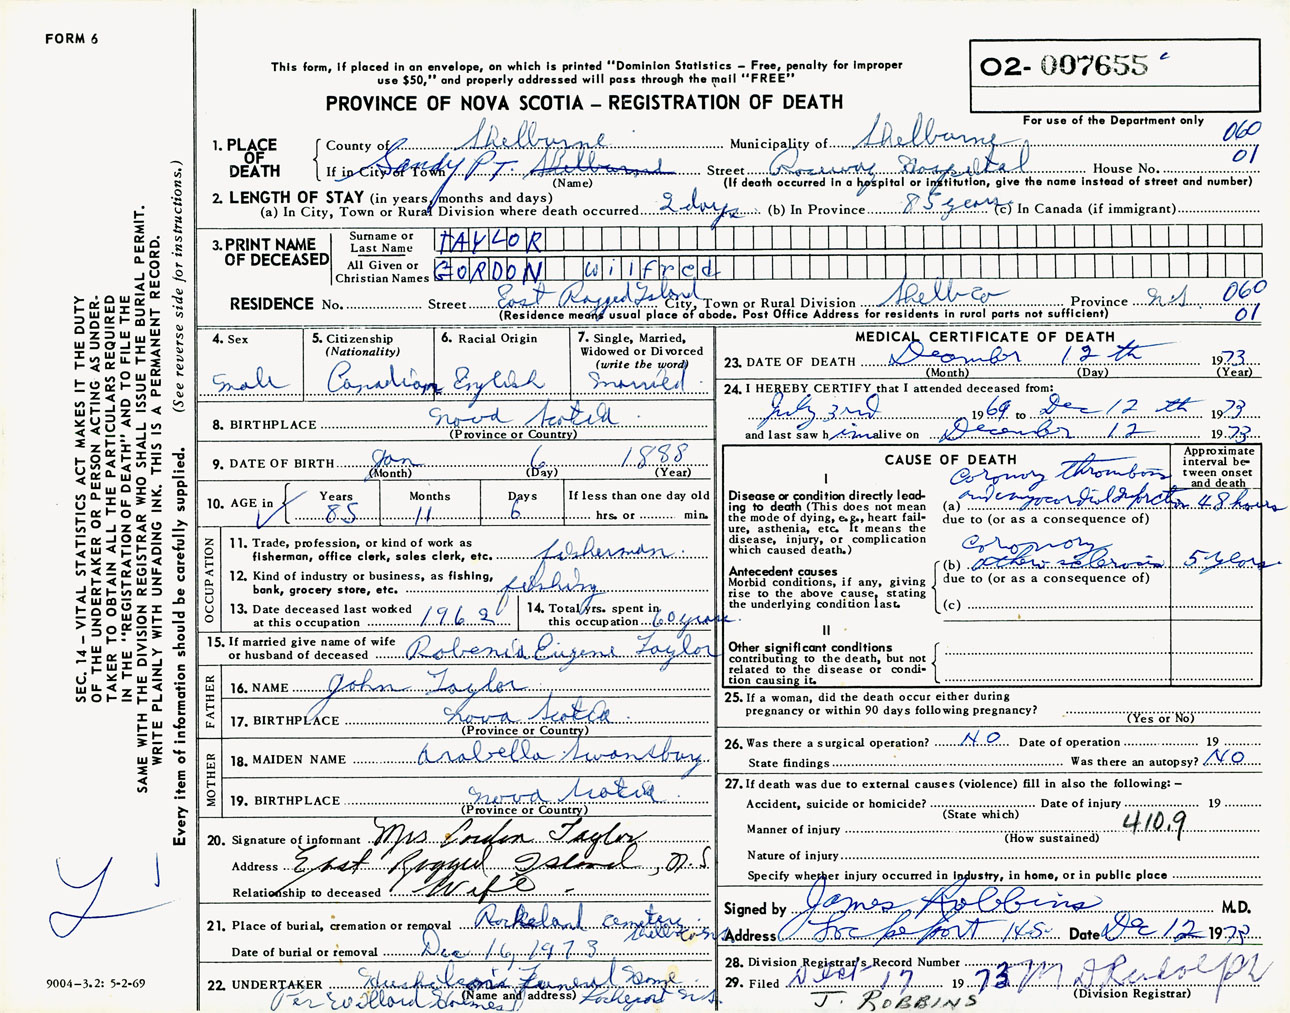 FORM 6
This form, if placed in an envelope, on which is printed "Dominion Statistics – Free, penalty for improper
use $50," and properly addressed will pass through the mail "FREE"
O2- 007655 c
PROVINCE OF NOVA SCOTIA – REGISTRATION OF DEATH
For use of the Department only
1. PLACE OF DEATH
County of Shelburne Municipality of Shelburne 060
If in City or Town Sandy Pt. Shelburne Street Roseway Hospital House No. 01
(Name) (If death occurred in a hospital or institution, give the name instead of street and number)
2. LENGTH OF STAY (in years, months and days)
(a) In City, Town or Rural Division where death occurred 2 days (b) In Province 85 years (c) In Canada (if immigrant)
3. PRINT NAME OF DECEASED
Surname or Last Name TAYLOR
All Given or Christian Names GORDON Wilfred
RESIDENCE No. Street East Ragged Island City, Town or Rural Division Shelb Co Province N.S. 060
(Residence means usual place of abode. Post Office Address for residents in rural parts not sufficient) 01
4. Sex Male
5. Citizenship (Nationality) Canadian
6. Racial Origin English
7. Single, Married, Widowed or Divorced (write the word) Married
8. BIRTHPLACE Nova Scotia
(Province or Country)
9. DATE OF BIRTH Jan 6 1888
(Month) (Day) (Year)
10. AGE in Years 85 Months 11 Days 6 If less than one day old hrs. or min.
OCCUPATION
11. Trade, profession, or kind of work as fisherman, office clerk, sales clerk, etc. fisherman
12. Kind of industry or business, as fishing, bank, grocery store, etc. fishing
13. Date deceased last worked at this occupation 1962
14. Total yrs. spent in this occupation 60 years
15. If married give name of wife or husband of deceased Robenia Eugene Taylor
FATHER
16. NAME John Taylor
17. BIRTHPLACE Nova Scotia
(Province or Country)
MOTHER
18. MAIDEN NAME Arabella Swansburg
19. BIRTHPLACE Nova Scotia
(Province or Country)
20. Signature of informant Mrs Gordon Taylor
Address East Ragged Island, N.S
Relationship to deceased Wife
21. Place of burial, cremation or removal Rockland cemetery Shelb Co NS
Date of burial or removal Dec 16, 1973
22. UNDERTAKER Funeral Home
(Name and address) Per Willard Lockeport N.S.
MEDICAL CERTIFICATE OF DEATH
23. DATE OF DEATH December 12 th 1973
(Month) (Day) (Year)
24. I HEREBY CERTIFY that I attended deceased from:
July 3rd 1969 to Dec 12 th 1973
and last saw him alive on December 12 1973
CAUSE OF DEATH
Approximate interval between onset and death
I
Disease or condition directly leading to death (This does not mean the mode of dying, e.g., heart failure, asthenia, etc. It means the disease, injury, or complication which caused death.)
(a) coronary thrombosis and myocardial infarction 48 hours
due to (or as a consequence of)
Antecedent causes
Morbid conditions, if any, giving rise to the above cause, stating the underlying condition last.
(b) Coronary arterio sclerosis 5 years
due to (or as a consequence of)
(c)
II
Other significant conditions
contributing to the death, but not related to the disease or condition causing it.
25. If a woman, did the death occur either during
pregnancy or within 90 days following pregnancy?
(Yes or No)
26. Was there a surgical operation? NO Date of operation 19
State findings Was there an autopsy? NO
27. If death was due to external causes (violence) fill in also the following: –
Accident, suicide or homicide? Date of injury 19
(State which)
Manner of injury 410.9
(How sustained)
Nature of injury
Specify whether injury occurred in Industry, in home, or in public place
Signed by James Robbins M.D.
Address Lockeport N.S. Date Dec 12 1973
28. Division Registrar's Record Number
29. Filed Dec 17 1973 M D Rudolph
(Division Registrar)
J. ROBBINS
SEC. 14 – VITAL STATISTICS ACT MAKES IT THE DUTY
OF THE UNDERTAKER OR PERSON ACTING AS UNDER-
TAKER TO OBTAIN ALL THE PARTICULARS REQUIRED
IN THE "REGISTRATION OF DEATH" AND TO FILE THE
SAME WITH THE DIVISION REGISTRAR WHO SHALL ISSUE THE BURIAL PERMIT.
WRITE PLAINLY WITH UNFADING INK. THIS IS A PERMANENT RECORD.
Every item of information should be carefully supplied. (See reverse side for instructions.)
9004-3.2: 5-2-69